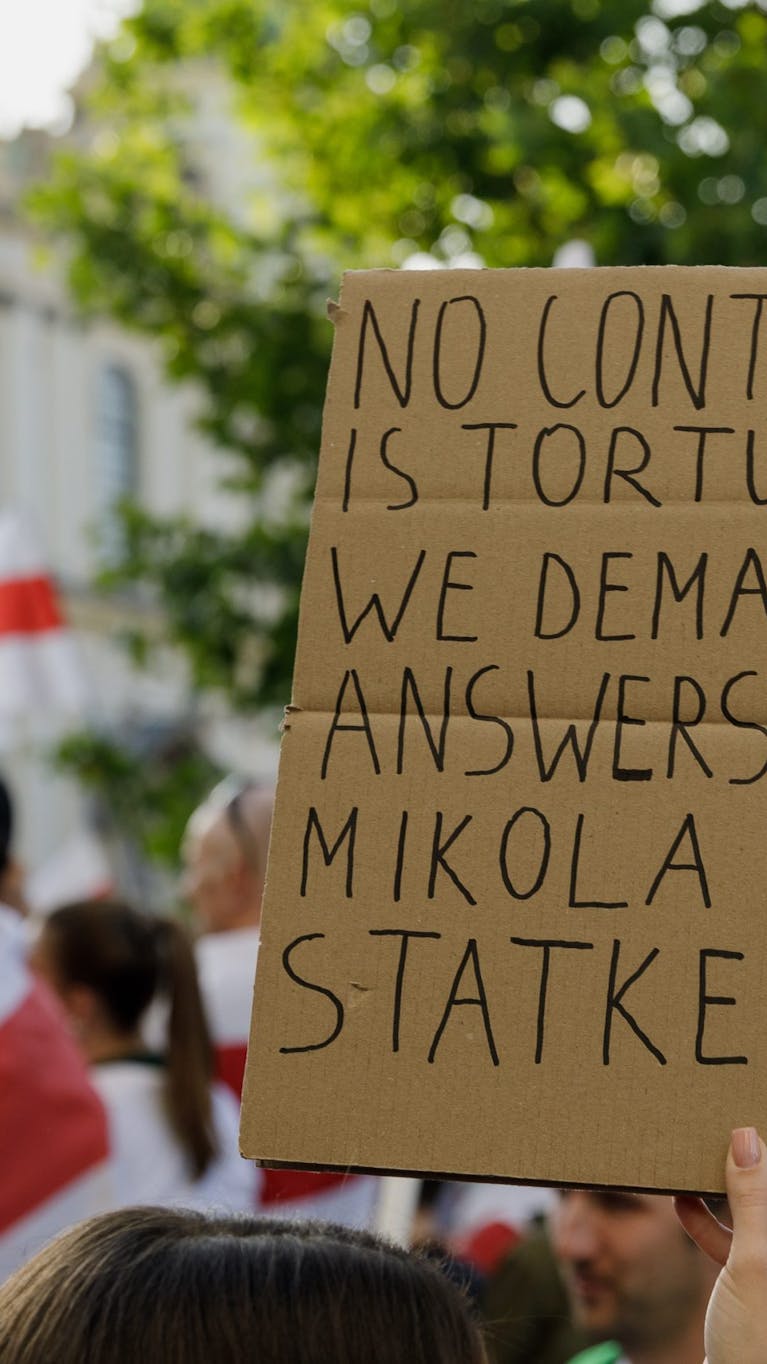 NO CONT
IS TORTU
WE DEMA
ANSWERS
MIKOLA
STATKE